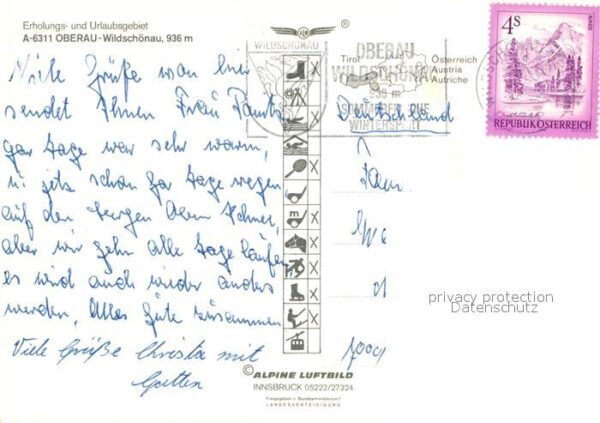 Erholungs- und Urlaubsgebiet
A-6311 OBERAU-Wildschönau, 936 m
WILDSCHÖNAU
OBERAU
WILDSCHÖNAU
936 m
SOMMERFRISCHE
WINTERSPORT
Tirol
Österreich
Austria
Autriche
4S
ALMSEE
REPUBLIK ÖSTERREICH
Viele Grüße von hier
sendet Ihnen Frau
Tage war sehr warm,
u. jetzt schon Tage regen
auf den Bergen oben Schnee,
aber wir gehn alle Tage laufen
es wird auch wieder anders
werden, Alles Gute zusammen
Viele Grüße Christa mit
Gatten
Deutschland
privacy protection
Datenschutz
© ALPINE LUFTBILD
INNSBRUCK 05222/27324
Freigegeben v. Bundesministerium f.
LANDESVERTEIDIGUNG